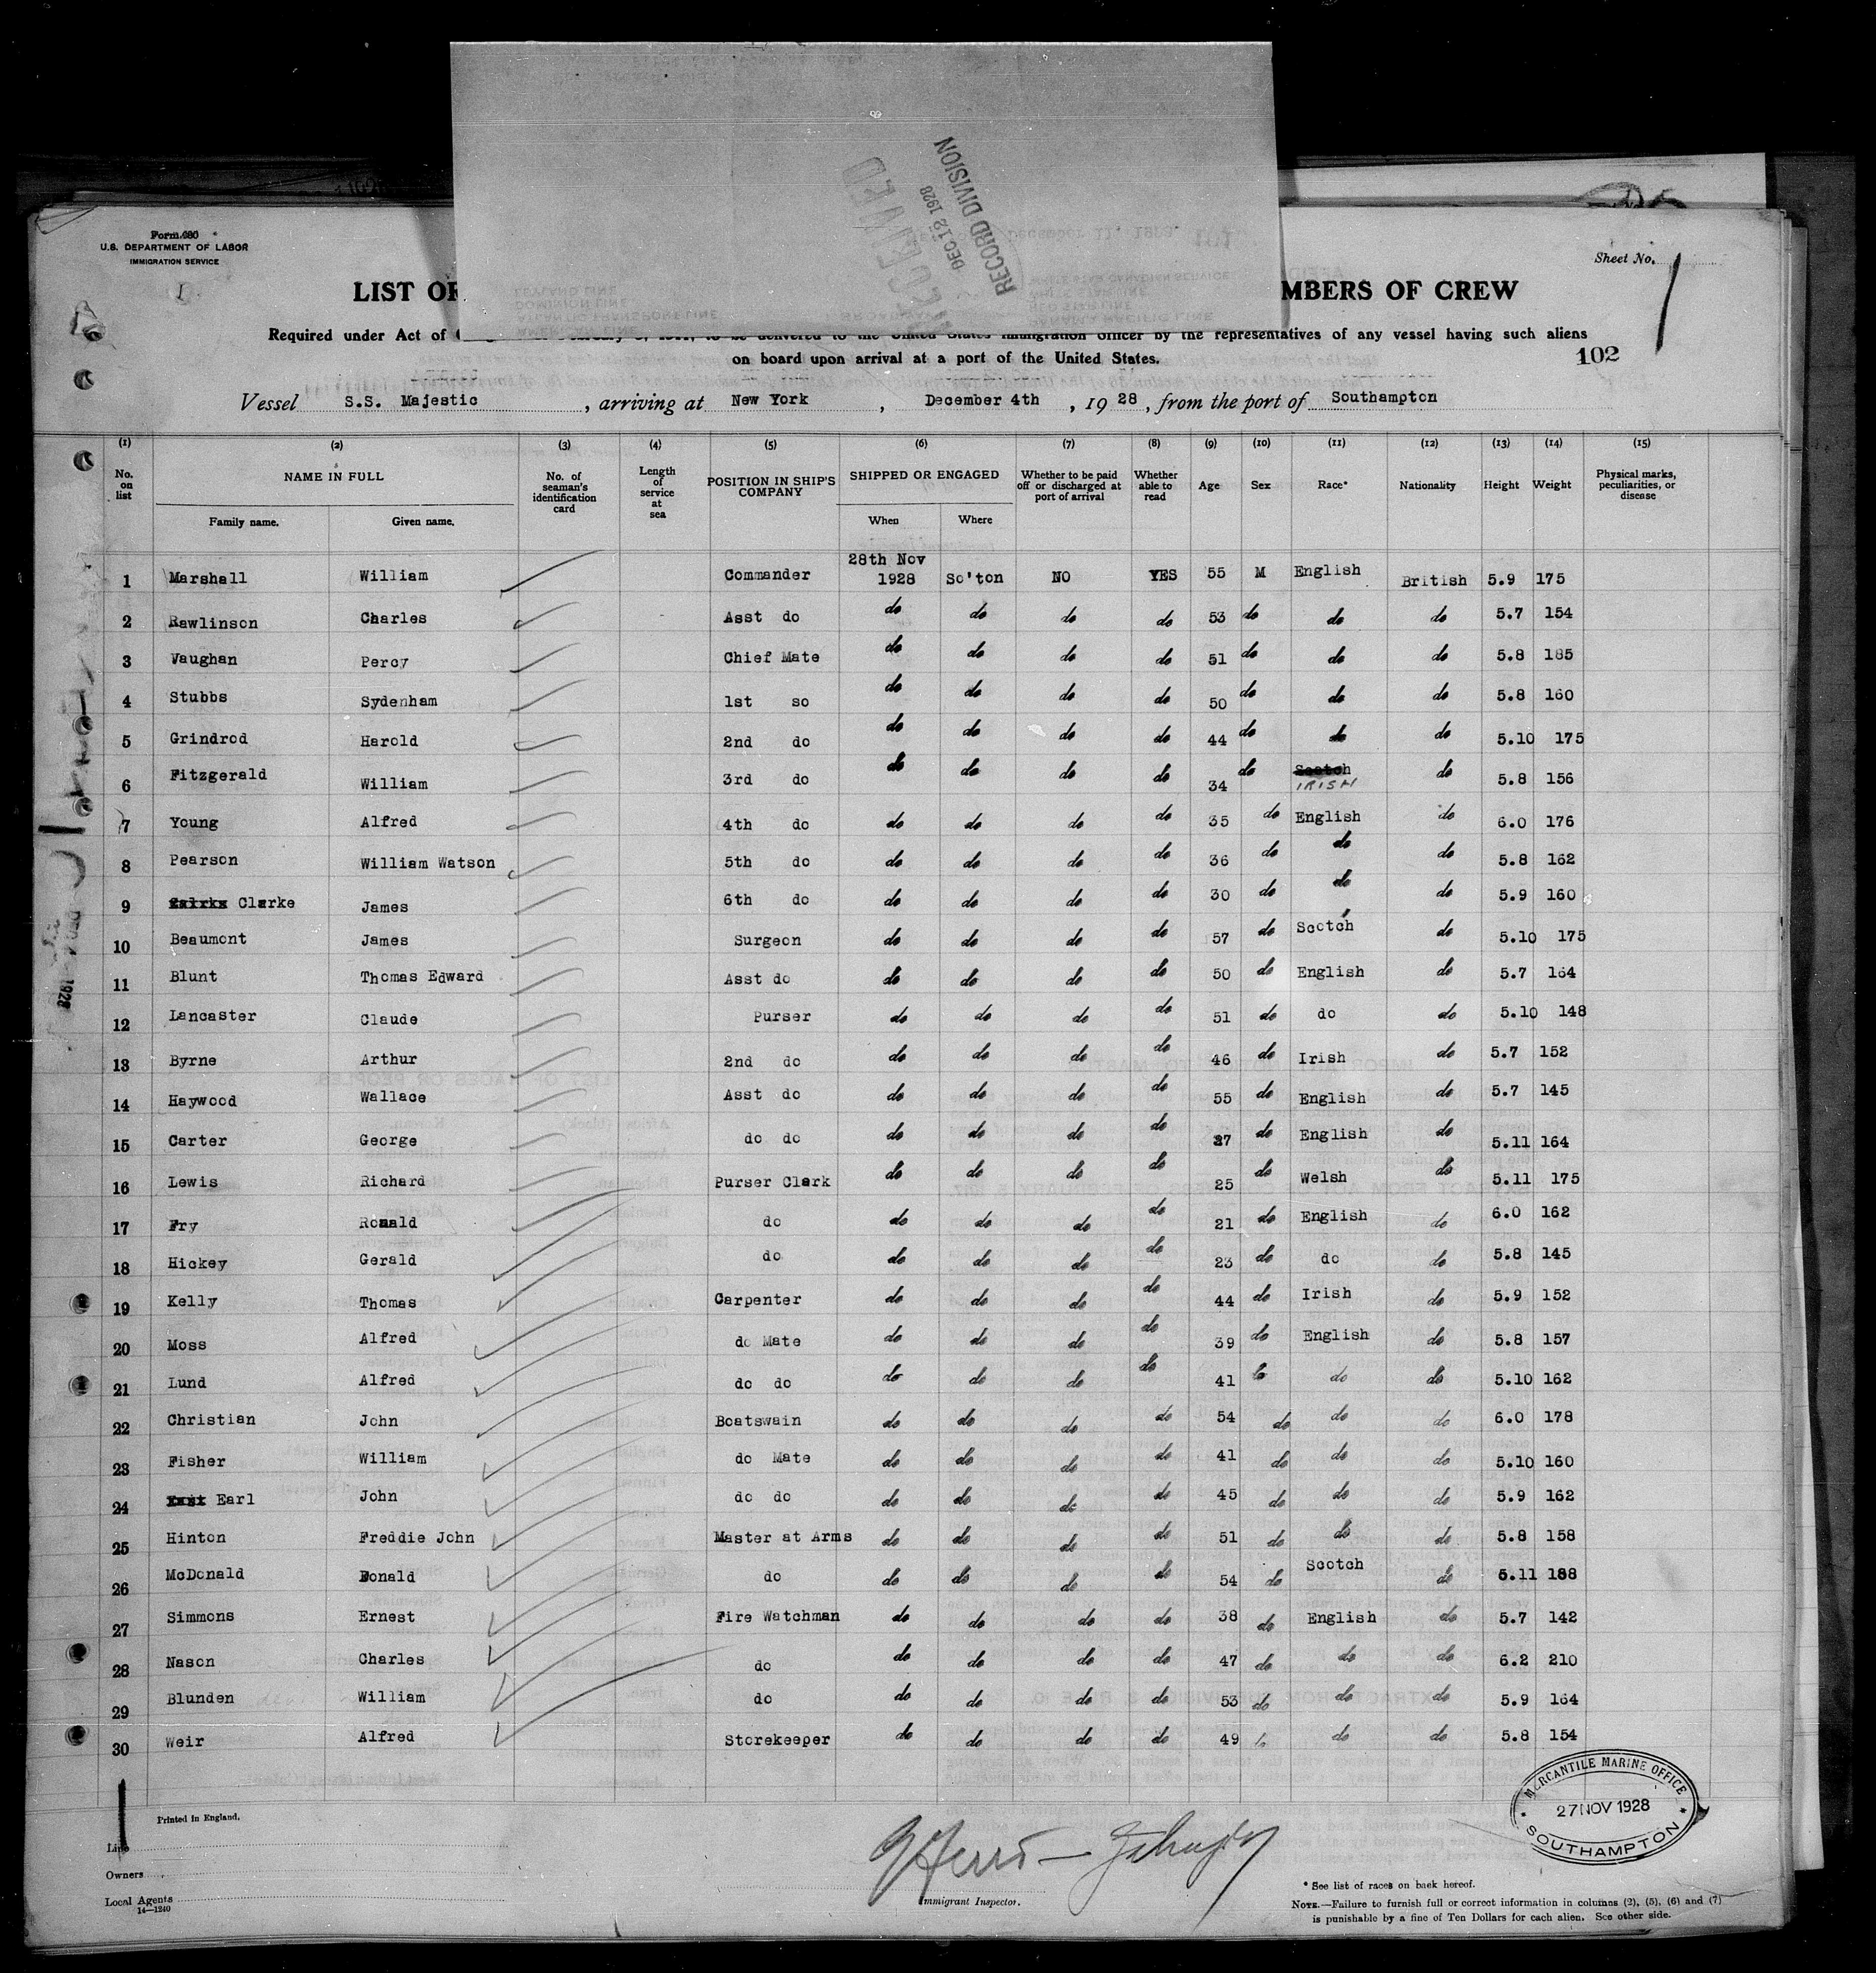 RECEIVED
DEC 12 1928
RECORD DIVISION
Form 680
U.S. DEPARTMENT OF LABOR
IMMIGRATION SERVICE
Sheet No. 1
LIST OF MBERS OF CREW
Required under Act of to be delivered to the United States immigration officer by the representatives of any vessel having such aliens
on board upon arrival at a port of the United States.
102
Vessel S.S. Majestic , arriving at New York , December 4th , 1928 , from the port of Southampton
(1) (2) (3) (4) (5) (6) (7) (8) (9) (10) (11) (12) (13) (14) (15)
No. on list NAME IN FULL No. of seaman's identification card Length of service at sea POSITION IN SHIP'S COMPANY SHIPPED OR ENGAGED Whether to be paid off or discharged at port of arrival Whether able to read Age Sex Race* Nationality Height Weight Physical marks, peculiarities, or disease
Family name. Given name. When Where
1 Marshall William Commander 28th Nov 1928 So'ton NO YES 55 M English British 5.9 175
2 Rawlinson Charles Asst do do do do do 53 do do do 5.7 154
3 Vaughan Percy Chief Mate do do do do 51 do do do 5.8 185
4 Stubbs Sydenham 1st so do do do do 50 do do do 5.8 160
5 Grindrod Harold 2nd do do do do do 44 do do do 5.10 175
6 Fitzgerald William 3rd do do do do do 34 do Scotch IRISH do 5.8 156
7 Young Alfred 4th do do do do do 35 do English do 6.0 176
8 Pearson William Watson 5th do do do do do 36 do do do 5.8 162
9 Clarke James 6th do do do do do 30 do do do 5.9 160
10 Beaumont James Surgeon do do do do 57 do Scotch do 5.10 175
11 Blunt Thomas Edward Asst do do do do do 50 do English do 5.7 164
12 Lancaster Claude Purser do do do do 51 do do do 5.10 148
13 Byrne Arthur 2nd do do do do do 46 do Irish do 5.7 152
14 Haywood Wallace Asst do do do do do 55 do English do 5.7 145
15 Carter George do do do do do do 27 do English do 5.11 164
16 Lewis Richard Purser Clark do do do do 25 do Welsh do 5.11 175
17 Fry Ronald do do do do do 21 do English do 6.0 162
18 Hickey Gerald do do do do do 23 do do do 5.8 145
19 Kelly Thomas Carpenter do do do do 44 do Irish do 5.9 152
20 Moss Alfred do Mate do do do do 39 do English do 5.8 157
21 Lund Alfred do do do do do do 41 do do do 5.10 162
22 Christian John Boatswain do do do do 54 do do do 6.0 178
23 Fisher William do Mate do do do do 41 do do do 5.10 160
24 Earl John do do do do do do 45 do do do 5.9 162
25 Hinton Freddie John Master at Arms do do do do 51 do do do 5.8 158
26 McDonald Donald do do do do do 54 do Scotch do 5.11 188
27 Simmons Ernest Fire Watchman do do do do 38 do English do 5.7 142
28 Nason Charles do do do do do 47 do do do 6.2 210
29 Blunden William do do do do do 53 do do do 5.9 164
30 Weir Alfred Storekeeper do do do do 49 do do do 5.8 154
MERCANTILE MARINE OFFICE
27 NOV 1928
SOUTHAMPTON
Printed in England.
Line
Owners
Local Agents
14—1240
Immigrant Inspector.
* See list of races on back hereof.
NOTE.—Failure to furnish full or correct information in columns (2), (5), (6) and (7)
is punishable by a fine of Ten Dollars for each alien. See other side.